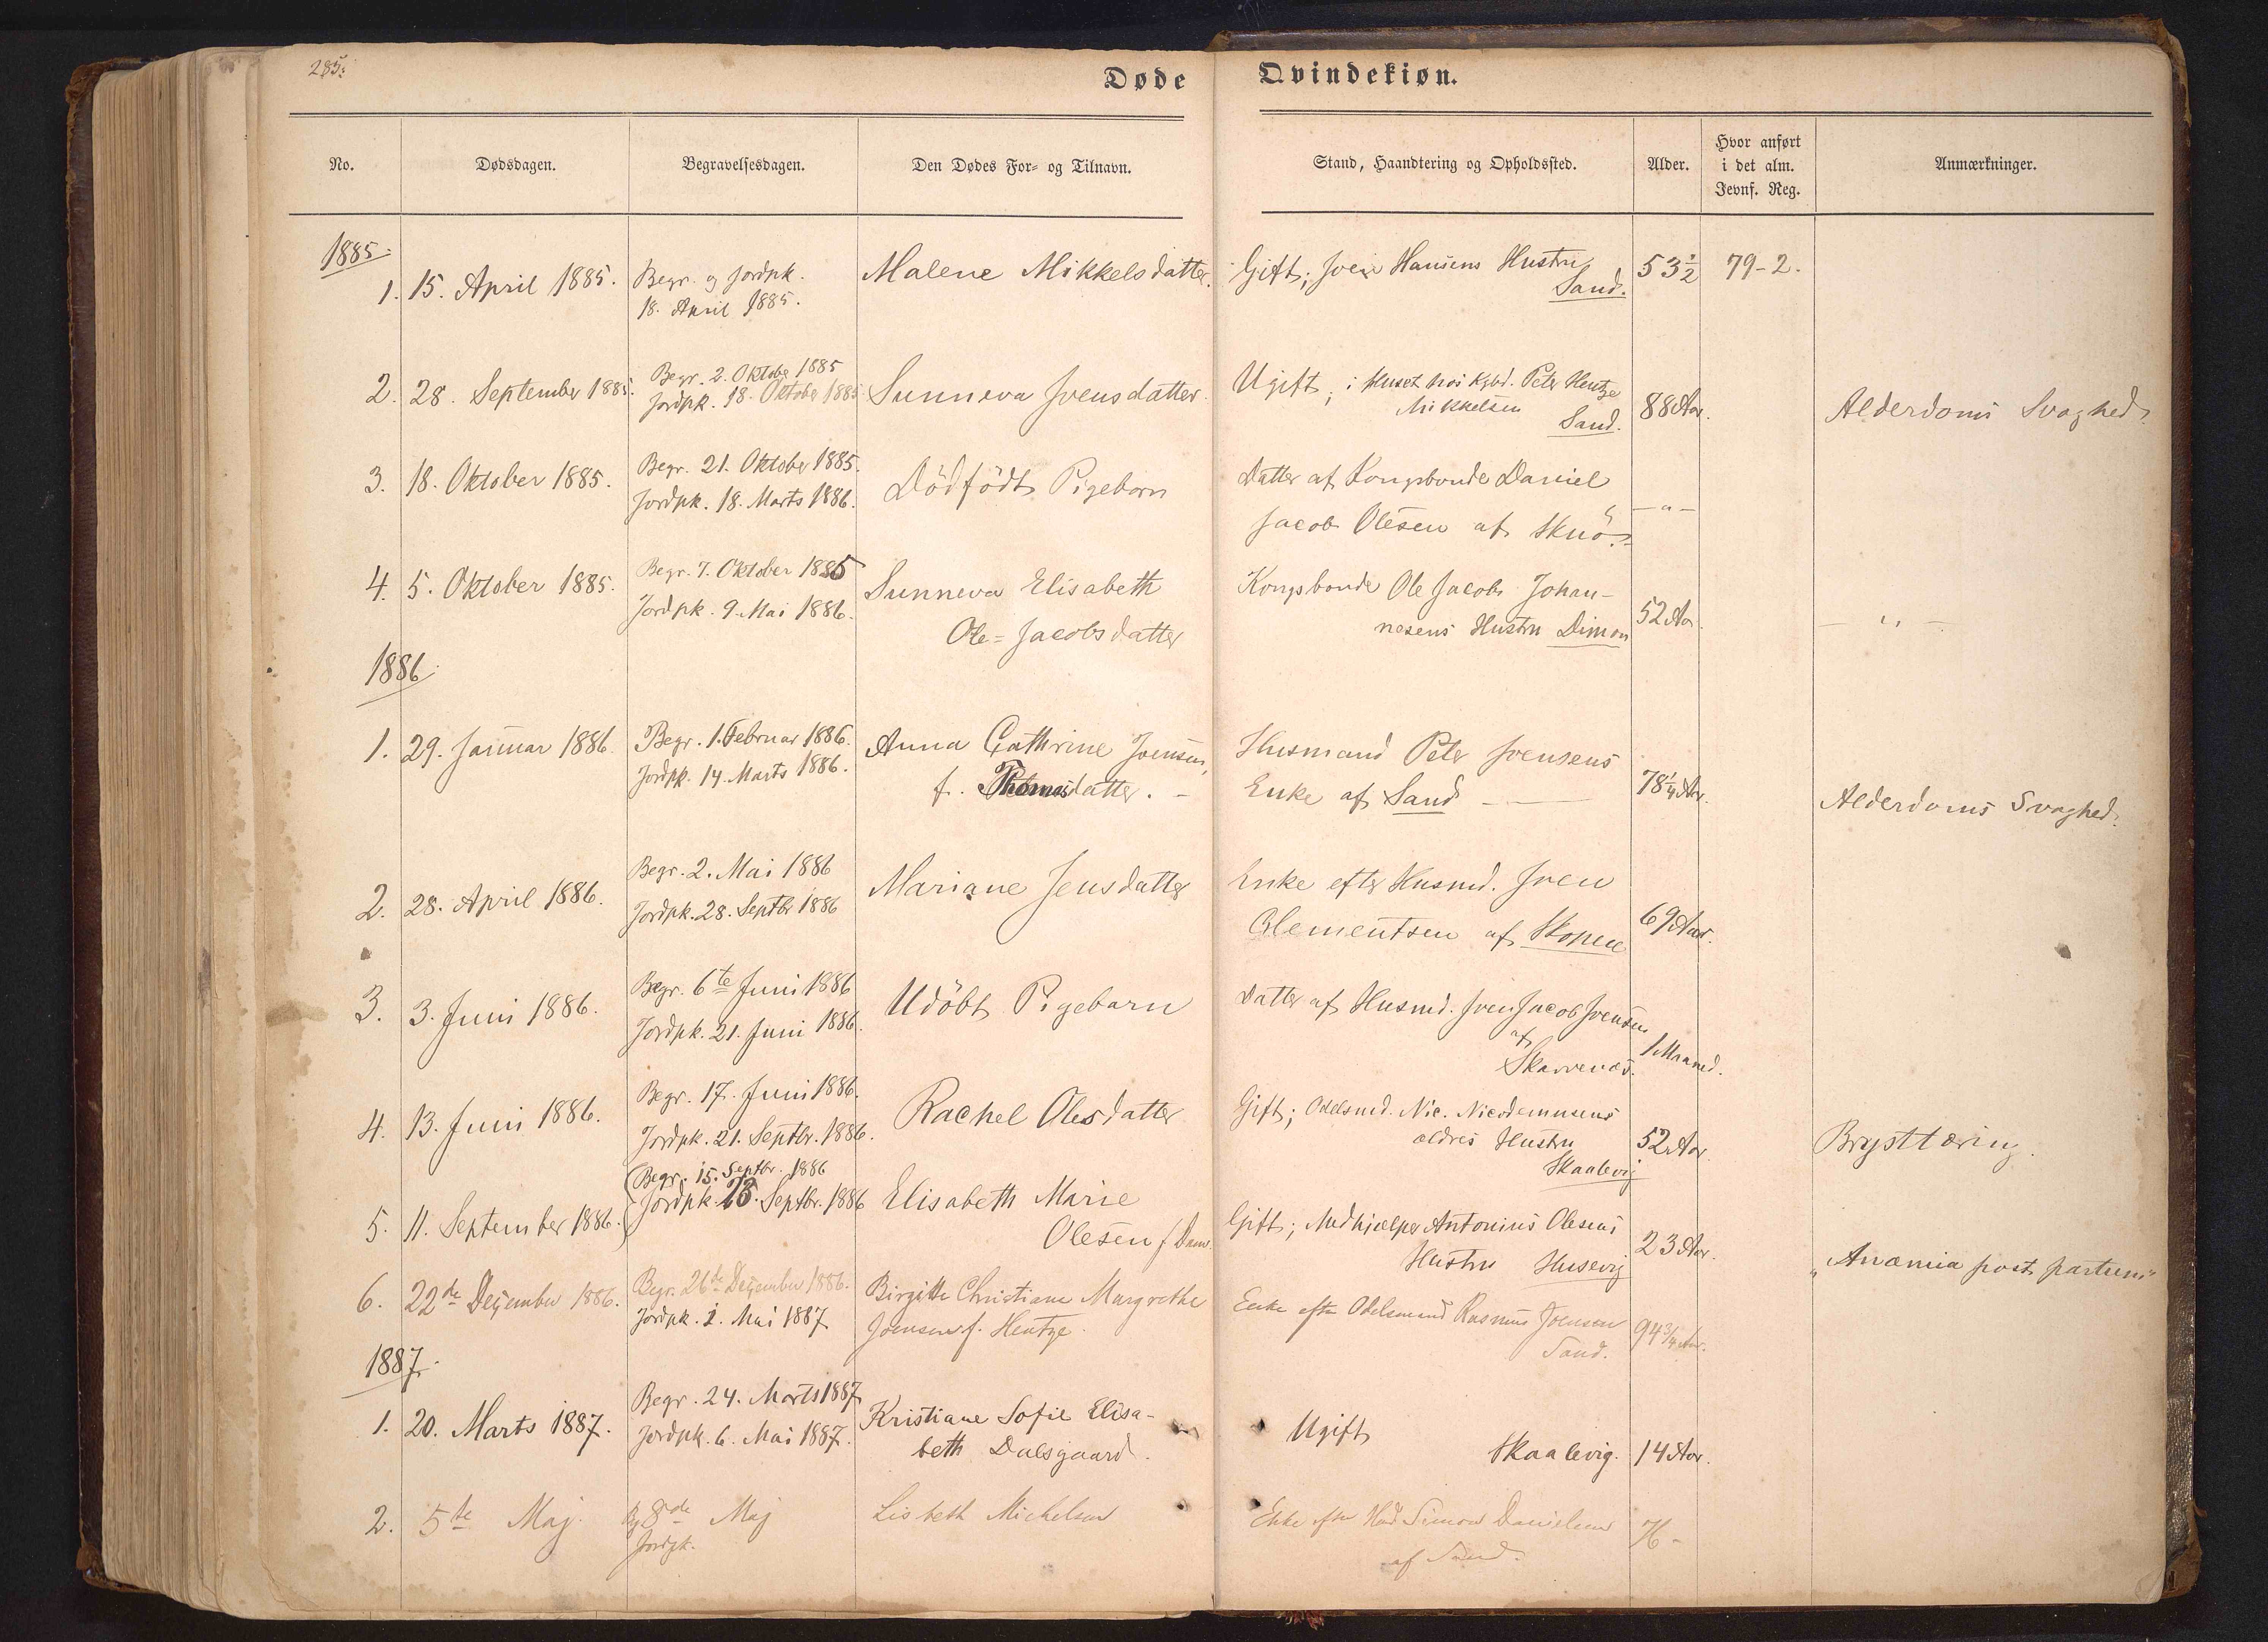 285.
Døde Qvindekiøn.
No. Dødsdagen. Begravelsesdagen. Den Dødes For- og Tilnavn. Stand, Haandtering og Opholdssted. Alder. Hvor anført i det alm. Jevnf. Reg. Anmærkninger.
1885.
1. 15. April 1885. Begr. og Jordpk. Malene Mikkelsdatter. Gift; Joen Hansens Hustru 53½ 79-2.
18. April 1885. Sand.
2. 28. September 1885. Begr. 2. Oktober 1885 Sunneva Joensdatter. Ugift; i Huset hos Kgbd. Peter Hentze 88 Aar. Alderdoms Svaghed.
Jordpk. 18. Oktober 1885 Mikkelsen
Sand.
3. 18. Oktober 1885. Begr. 21. Oktober 1885. Dödfödt Pigebarn Datter af Kongsbonde Daniel — " —
Jordpk. 18. Marts 1886. Jacob Olesen af Skuö.
4. 5. Oktober 1885. Begr. 7. Oktober 1885 Sunneva Elisabeth Kongsbonde Ole Jacob Johan- 52 Aar. — " —
Jordpk. 9. Mai 1886. Ole=Jacobsdatter nesens Hustru Dimon
1886.
1. 29. Januar 1886. Begr. 1. Februar 1886. Anna Cathrine Joensen, Husmand Peter Joensens 78¼ Aar. Alderdoms Svaghed.
Jordpk. 14. Marts 1886. f. Thomasdatter. — Enke af Sand —
2. 28. April 1886. Begr. 2. Mai 1886 Mariane Jensdatter Enke efter Husmd. Joen 69 Aar.
Jordpk. 28. Septbr 1886 Clementsen af Skopen
3. 3. Juni 1886. Begr. 6te Juni 1886 Udöbt Pigebarn Datter af Husmd. Joen Jacob Joensen 1 Maaned.
Jordpk. 21. Juni 1886. af
Skarvenæs.
4. 13. Juni 1886. Begr. 17. Juni 1886. Rachel Olesdatter Gift; Odelsmd. Nic. Nicodemusens 52 Aar. Brysttæring.
Jordpk. 21. Septbr. 1886. ældres Hustru
Skaalevig
5. 11. September 1886. Begr. 15. Septbr. 1886 Elisabeth Marie Gift; Medhjælper Antonius Olesens 23 Aar. "Anæmia post partum"
Jordpk. 28. Septbr. 1886 Olesen f. Hustru Husevig
6. 22de Dezember 1886. Begr. 26de Dezember 1886. Birgitte Christiane Margrethe Enke efter Odelsmand Rasmus Joensen 94¾ Aar.
Jordpk. 1. Mai 1887 Joensen f. Hentze. Sand.
1887.
1. 20. Marts 1887. Begr. 24. Marts 1887 Kristiane Sofie Elisa- Ugift 14 Aar.
Jordpk. 6. Mai 1887. beth Dalsgaard. Skaalevig.
2. 5te Maj. Bg 8de Maj Lisbeth Michelsen Enke efter Simon Danielsen 76 -
Jordpk. af Sand.